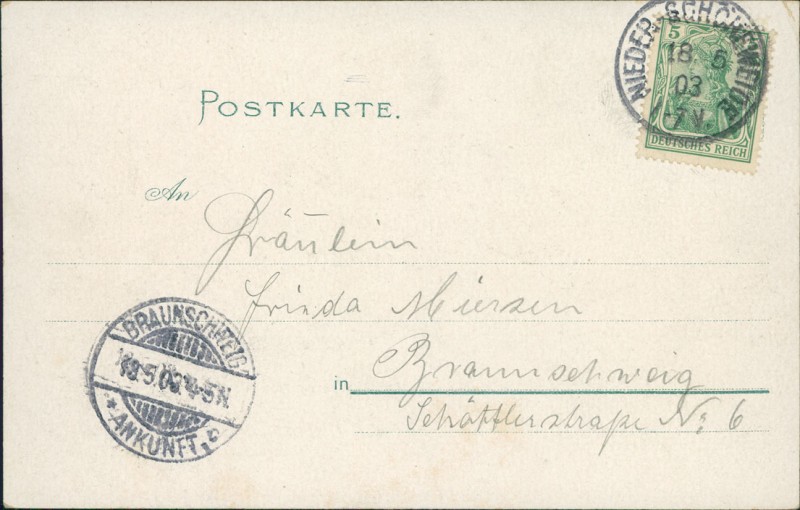 NIEDER-SCHÖNEWEIDE
18. 5.
03
7 N.
5
DEUTSCHES REICH
POSTKARTE.
An
Fräulein
Frieda Miersen
in Braunschweig
Schöttlerstraße No 6
BRAUNSCHWEIG
19.5.03 4-5N.
* ANKUNFT. c